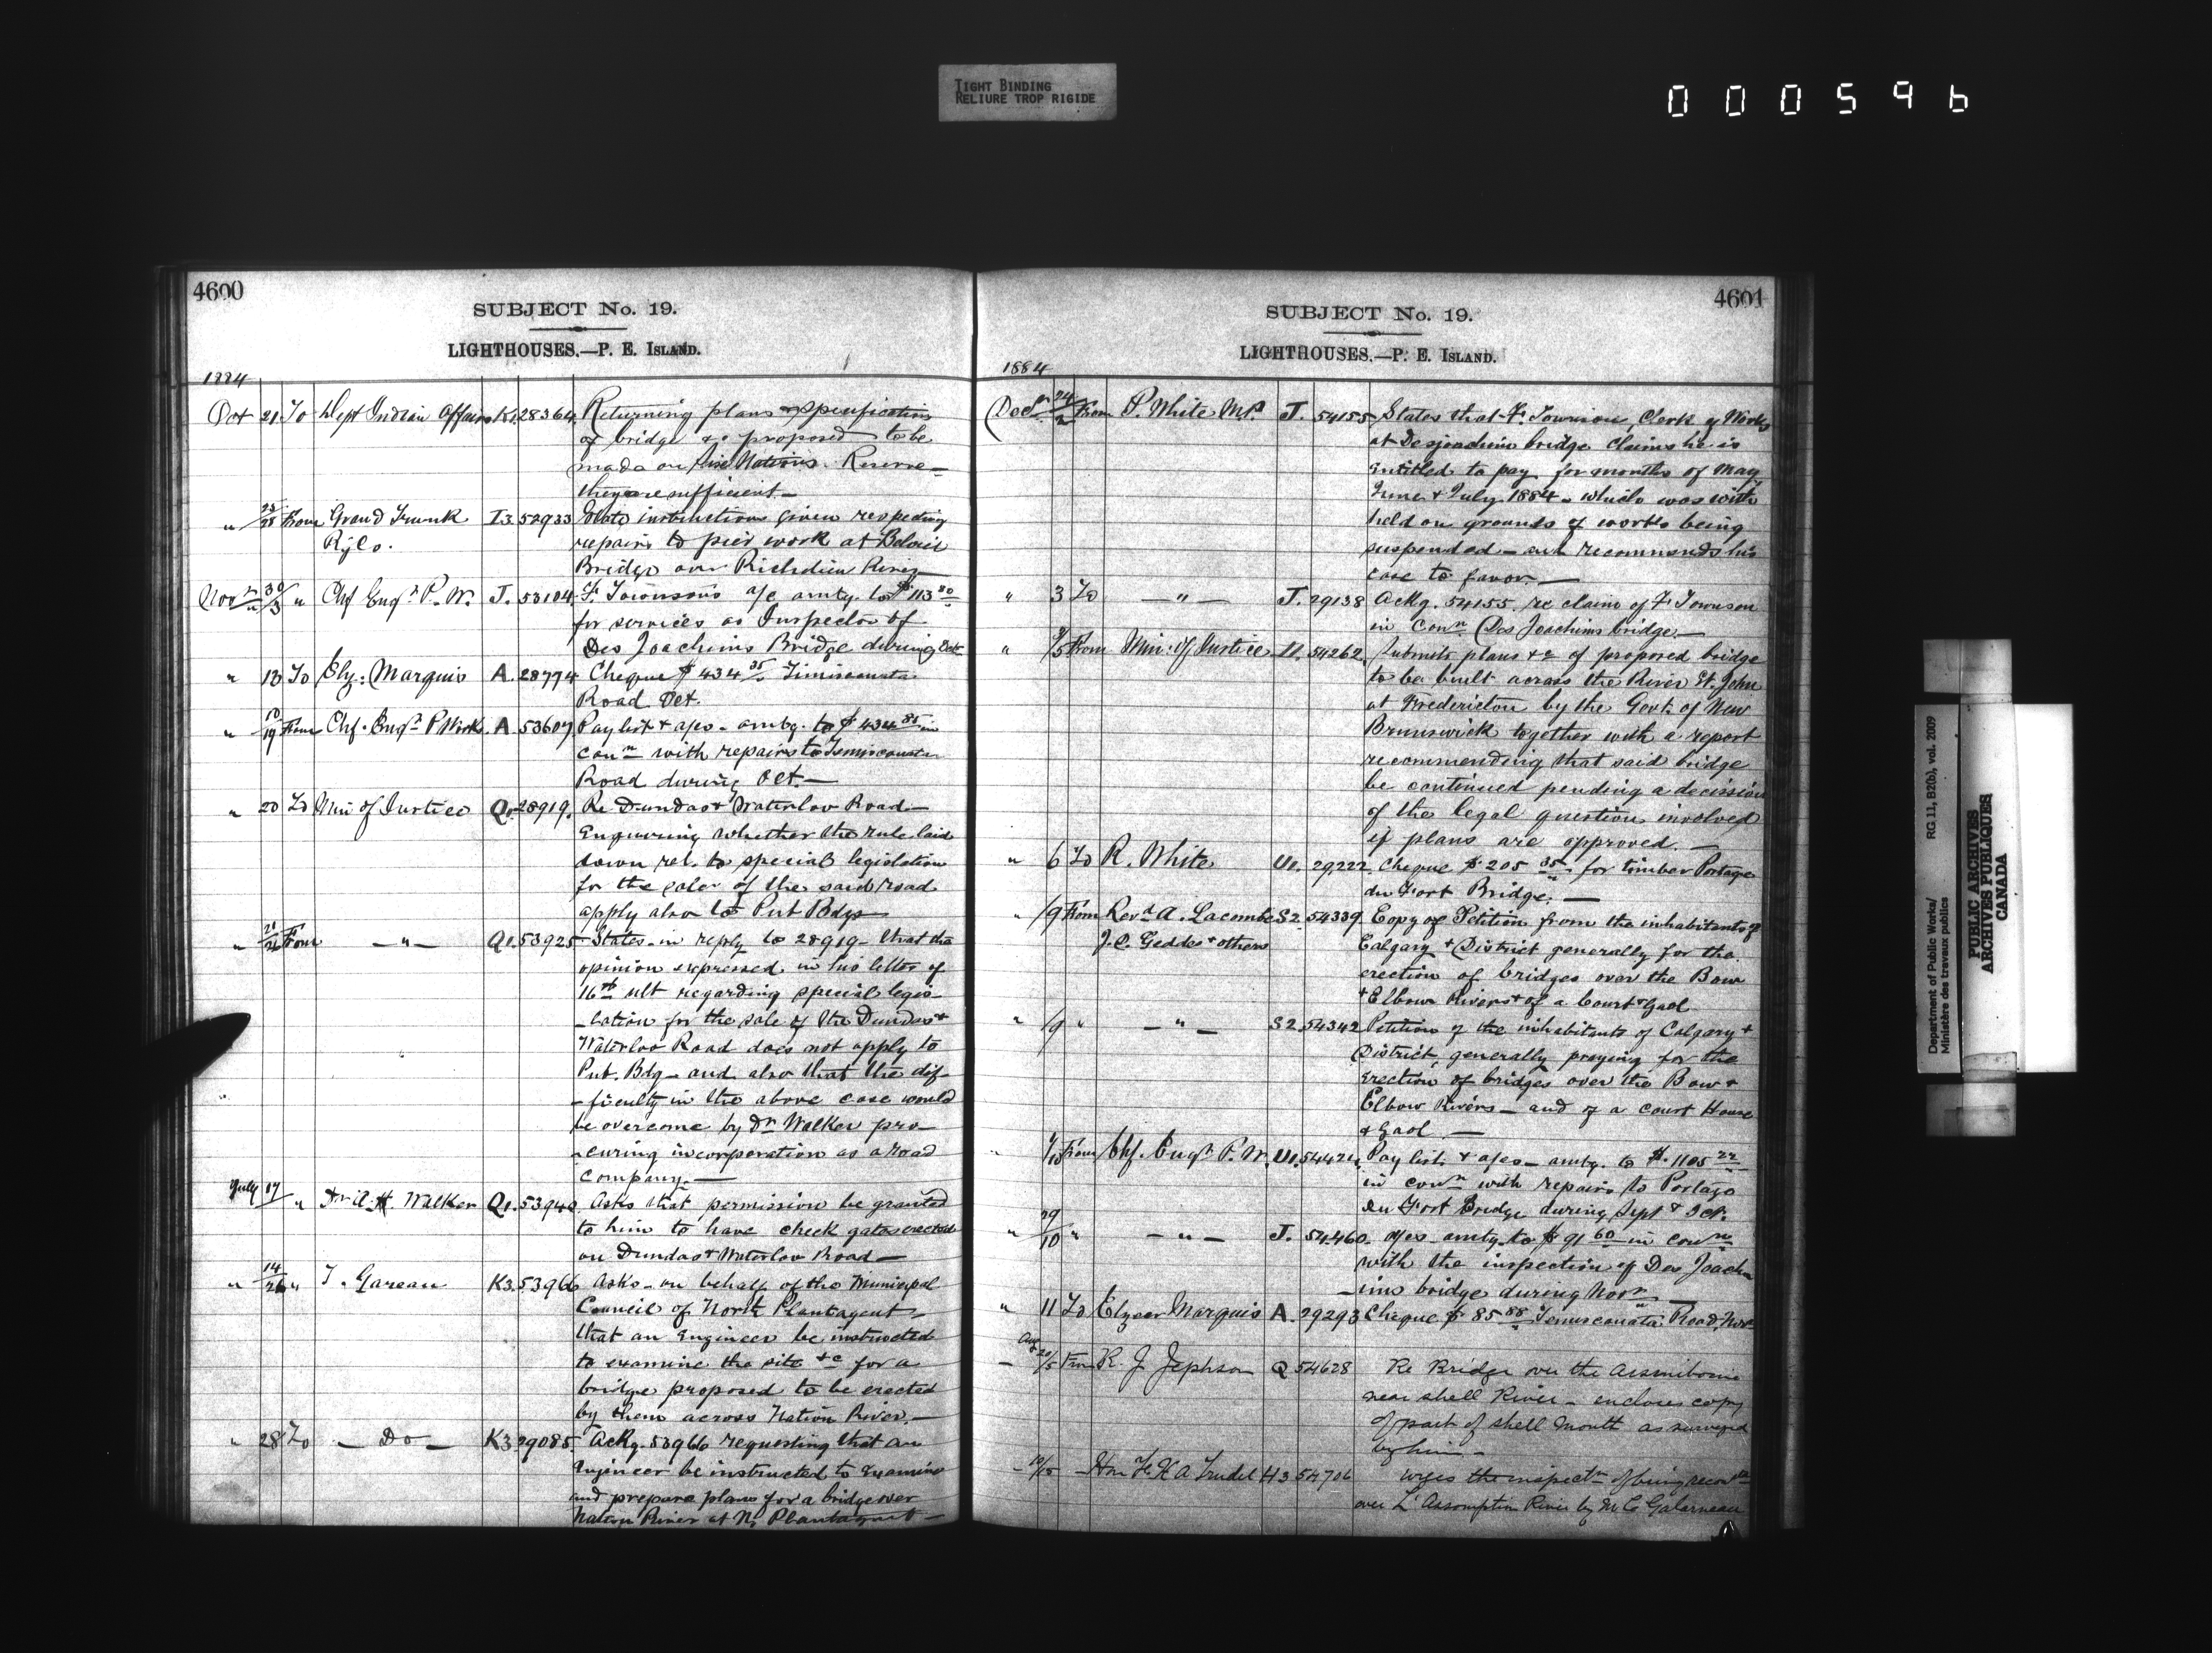 TIGHT BINDING
RELIURE TROP RIGIDE
000596
4600
SUBJECT No. 19.
LIGHTHOUSES.—P. E. ISLAND.
1884
Oct 21 To Dept Indian Affairs K1. 28364. Returning plans & specification
of bridge &c proposed to be
made on Reserve—
they are sufficient—
" 25/28 From Grand Trunk I3. 52933 State instructions given respecting
Ry Co. repairs to pier work at Beloeil
Bridge over Richelieu River—
Novr 30/3 " Chf Engr P. W. J. 53104. F. Townson's a/c amtg. to $113 80
for services as Inspector of
Des Joachims Bridge during Oct
" 13 To Elz: Marquis A. 28774 Cheque $434 35 Timiscouata
Road Oct.
" 10/19 From Chf. Engr P Works. A. 53607 Pay list & a/cs - amtg. to $434 35 in
conn with repairs to Temiscouata
Road during Oct.—
" 20 To Min of Justice Q1. 28919. Re Dundas & Waterloo Road—
Enquiring whether the rule laid
down rel. to special legislation
for the sale of the said road
apply also to Pub Bdgs—
" 21/26 From — " — Q1. 53925 States in reply to 28919 that the
opinion expressed in his letter of
16th ult regarding special legis-
-lation for the sale of the Dundas &
Waterloo Road does not apply to
Pub. Bdg— and also that the dif-
-ficulty in the above case would
be overcome by Dr Walker pro-
-curing incorporation as a road
Company.—
July 17/" Dr A. H. Walker Q1. 53940. Asks that permission be granted
to him to have check gates erected
on Dundas & Waterloo Road—
" 14/26 " T. Gareau K3. 53966 Asks on behalf of the Municipal
Council of North Plantagent—
that an Engineer be instructed
to examine the site &c for a
bridge proposed to be erected
by them across Nation River.—
" 28 To — Do — K3. 29085. Ackg. 53966 requesting that an
Engineer be instructed to examine
and prepare plans for a bridge over
Nation River at N. Plantagent—
4601
SUBJECT No. 19.
LIGHTHOUSES.—P. E. ISLAND.
1884
Decr 24/2 From P. White M.P. J. 54155 States that F. Townson, Clerk of Works
at Desjoachim bridge claims he is
entitled to pay for months of May
June & July 1884 - which was with
held on grounds of works being
suspended - and recommends his
case to favor.—
" 3 To — " — J. 29138 Ackg. 54155 re claim of F. Townson
in conn Des Joachims bridge—
" /5 From Min: of Justice 54262. Submits plans &c of proposed bridge
to be built across the River St. John
at Fredericton by the Govt. of New
Brunswick together with a report
recommending that said bridge
be continued pending a decission
of the legal question involved
if plans are approved.—
" 6 To R. White U1. 29222. Cheque $205 35 for timber Portage
du Fort Bridge.—
" /9 From Revd A. Lacombe S2. 54339. Copy of Petition from the inhabitants of
J. C. Geddes & others Calgary & District generally for the
erection of bridges over the Bow
& Elbow Rivers & of a Court & Gaol
" /9 " — " — S2. 54342 Petition of the inhabitants of Calgary &
District, generally praying for the
erection of bridges over the Bow &
Elbow Rivers— and of a court House
& Gaol.—
" /10 From Chf. Engr P. W. U1. 54424. Pay lists & a/cs— amtg. to $1105 22
in conn with repairs to Portage
du Fort Bridge during Sept & Oct.
" 29/10 " — " — J. 54460. a/cs amtg. to $91 60 in conn
with the inspection of Des Joach-
-ims bridge during Novr—
" 11 To Elzear Marquis A. 29293 Cheque $85 88 Temiscouata Road, Nov
Aug 20/5 From R. J. Jephson Q 54628 Re Bridge over the Assiniboine
near Shell River - encloses copy
of part of Shell Mouth as surveyed
by him—
— 10/15 — Hon F. X A Trudel H3 54706 urges the inspectn of being
over L'Assomption River by M. C. Galarneau
Department of Public Works/ RG 11, B2(b), vol. 2009
Ministère des travaux publics
PUBLIC ARCHIVES
ARCHIVES PUBLIQUES
CANADA